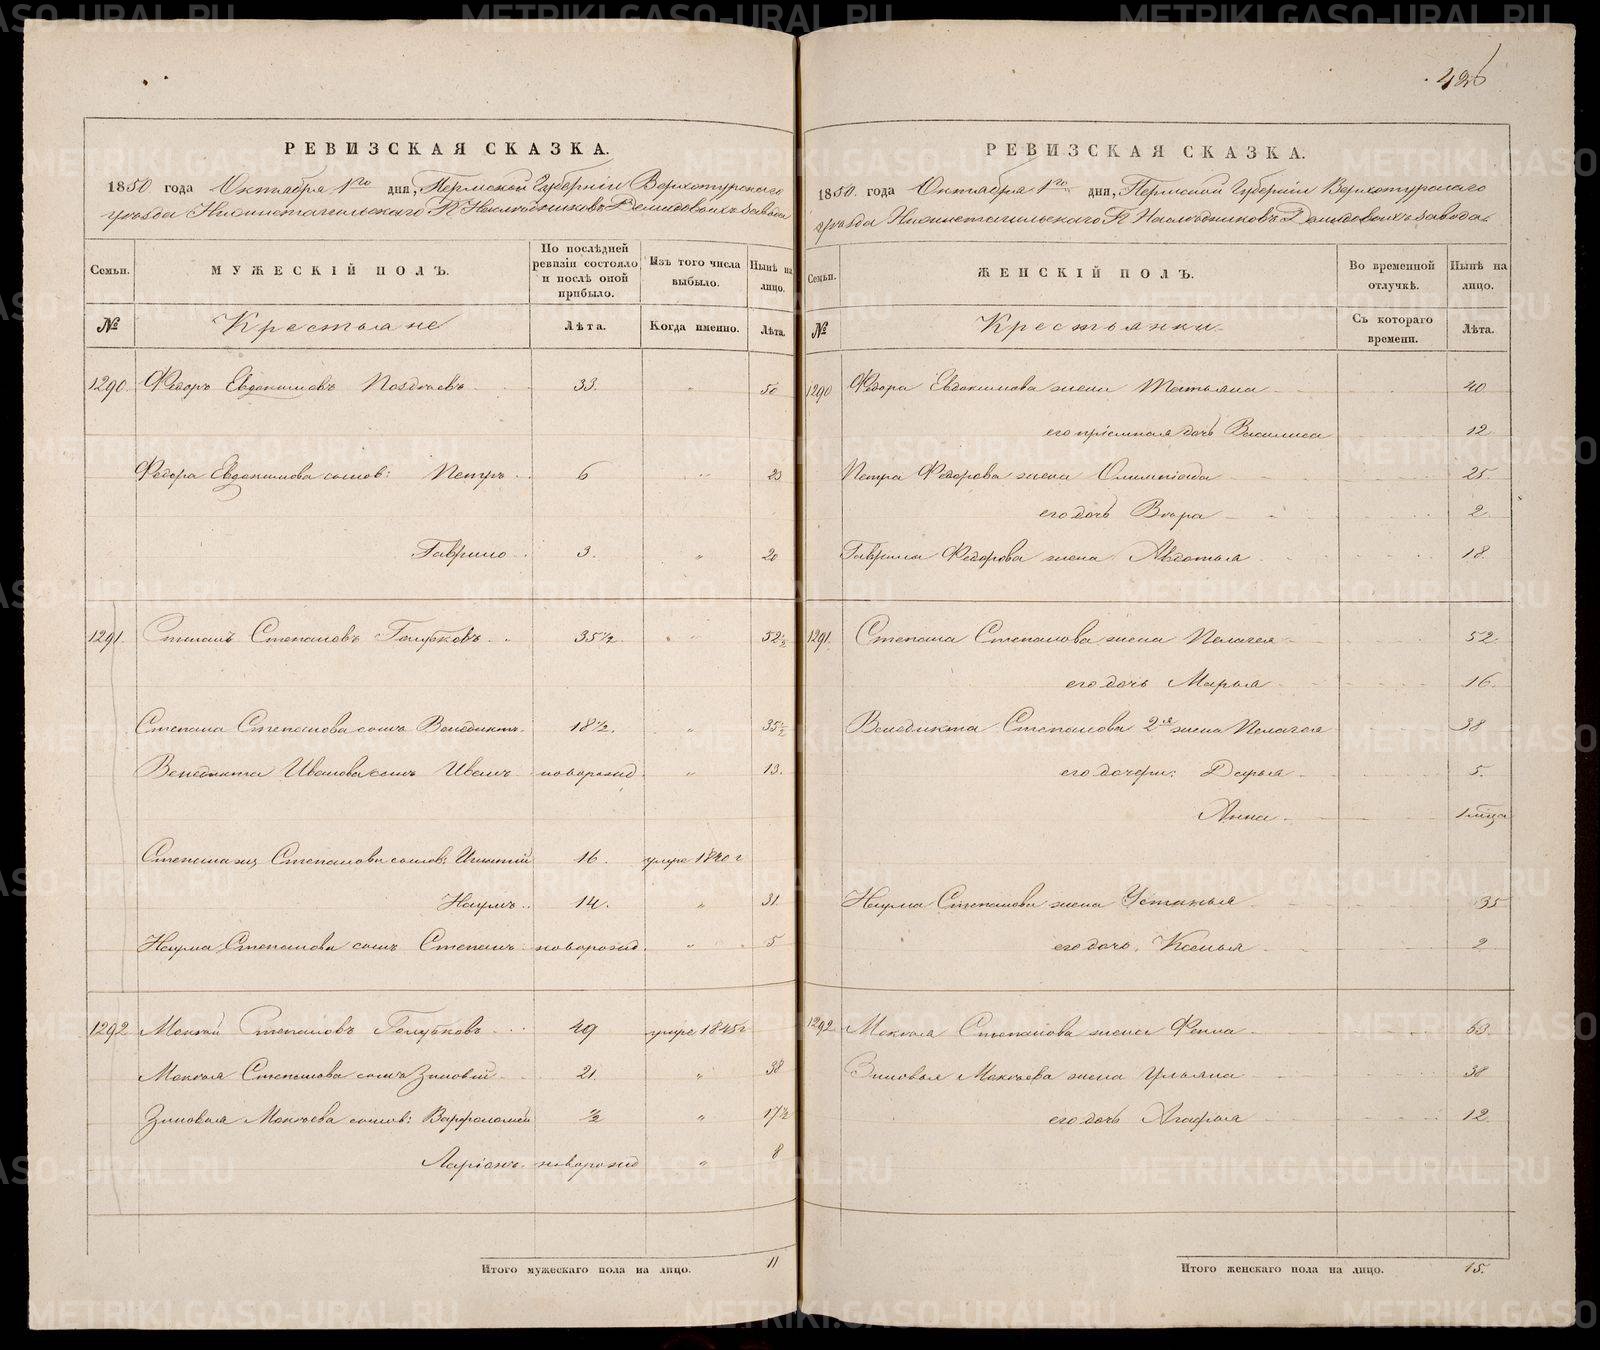 426
РЕВИЗСКАЯ СКАЗКА.
1850 года Октября 1го дня, Пермской Губерніи Верхотурскаго
уѣзда Нижнетагильскаго Г Наслѣдниковъ Демидовыхъ завода
Семьи. МУЖЕСКІЙ ПОЛЪ. По послѣдней ревизіи состояло и послѣ оной прибыло. Изъ того числа выбыло. Нынѣ на лицо.
№ Крестьяне Лѣта. Когда именно. Лѣта.
1290. Федоръ Евдокимовъ Поздѣевъ 33. " 50
Федора Евдокимова сынов: Петръ 6 " 23
Гаврило 3. " 20
1291. Степанъ Степановъ Голубковъ 35½ " 52½
Степана Степанова сынъ Венедиктъ 18½. " 35½
Венедикта Иванова сынъ Иванъ новорожд. " 13.
Степана Степанова сынов: Игнатій 16. умре 1840 г
Наумъ 14. " 31
Наума Степанова сынъ Степанъ новорожд. " 5
1292 Мокѣй Степановъ Голубковъ 49 умре 1845 г
Мокѣя Степанова сынъ Зиновій 21. " 38
Зиновья Мокѣева сынов: Варфоломей ½ " 17½
Ларіонъ новорожд " 8
Итого мужескаго пола на лицо. 11
РЕВИЗСКАЯ СКАЗКА.
1850. года Октября 1го дня, Пермской Губерніи Верхотурскаго
уѣзда Нижнетагильскаго Г Наслѣдниковъ Демидовыхъ завода.
Семьи. ЖЕНСКІЙ ПОЛЪ. Во временной отлучкѣ. Нынѣ на лицо.
№ Крестьянки Съ котораго времени. Лѣта.
1290 Федора Евдокимова жена Татьяна 40
его пріемная дочь Василиса 12
Петра Федорова жена Олимпіада 25.
его дочь Вѣра 2.
Гаврила Федорова жена Авдотья 18.
1291. Степана Степанова жена Пелагея 52.
его дочь Марья 16.
Венедикта Степанова 2я жена Пелагея 38
его дочери: Дарья 5.
Анна 1 мѣсца
Наума Степанова жена Устинья 35
его дочь Ксенья 2
1292 Мокѣя Степанова жена Фекла 63.
Зиновья Мокѣева жена Ульяна 38
его дочь Агафья 12
Итого женскаго пола на лицо. 15.
METRIKI.GASO-URAL.RU